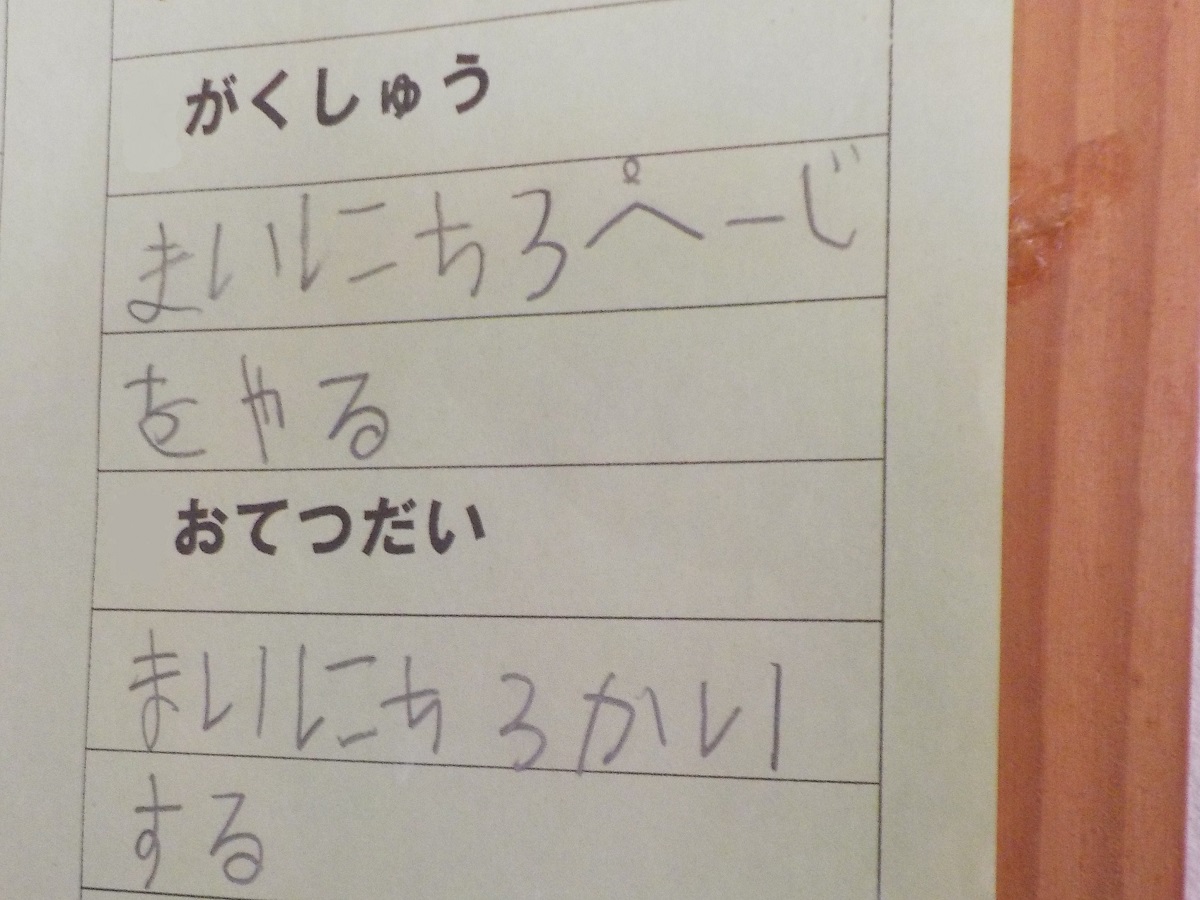 がくしゅう
まいにち3ぺーじ
をやる
おてつだい
まいにち3かい
する